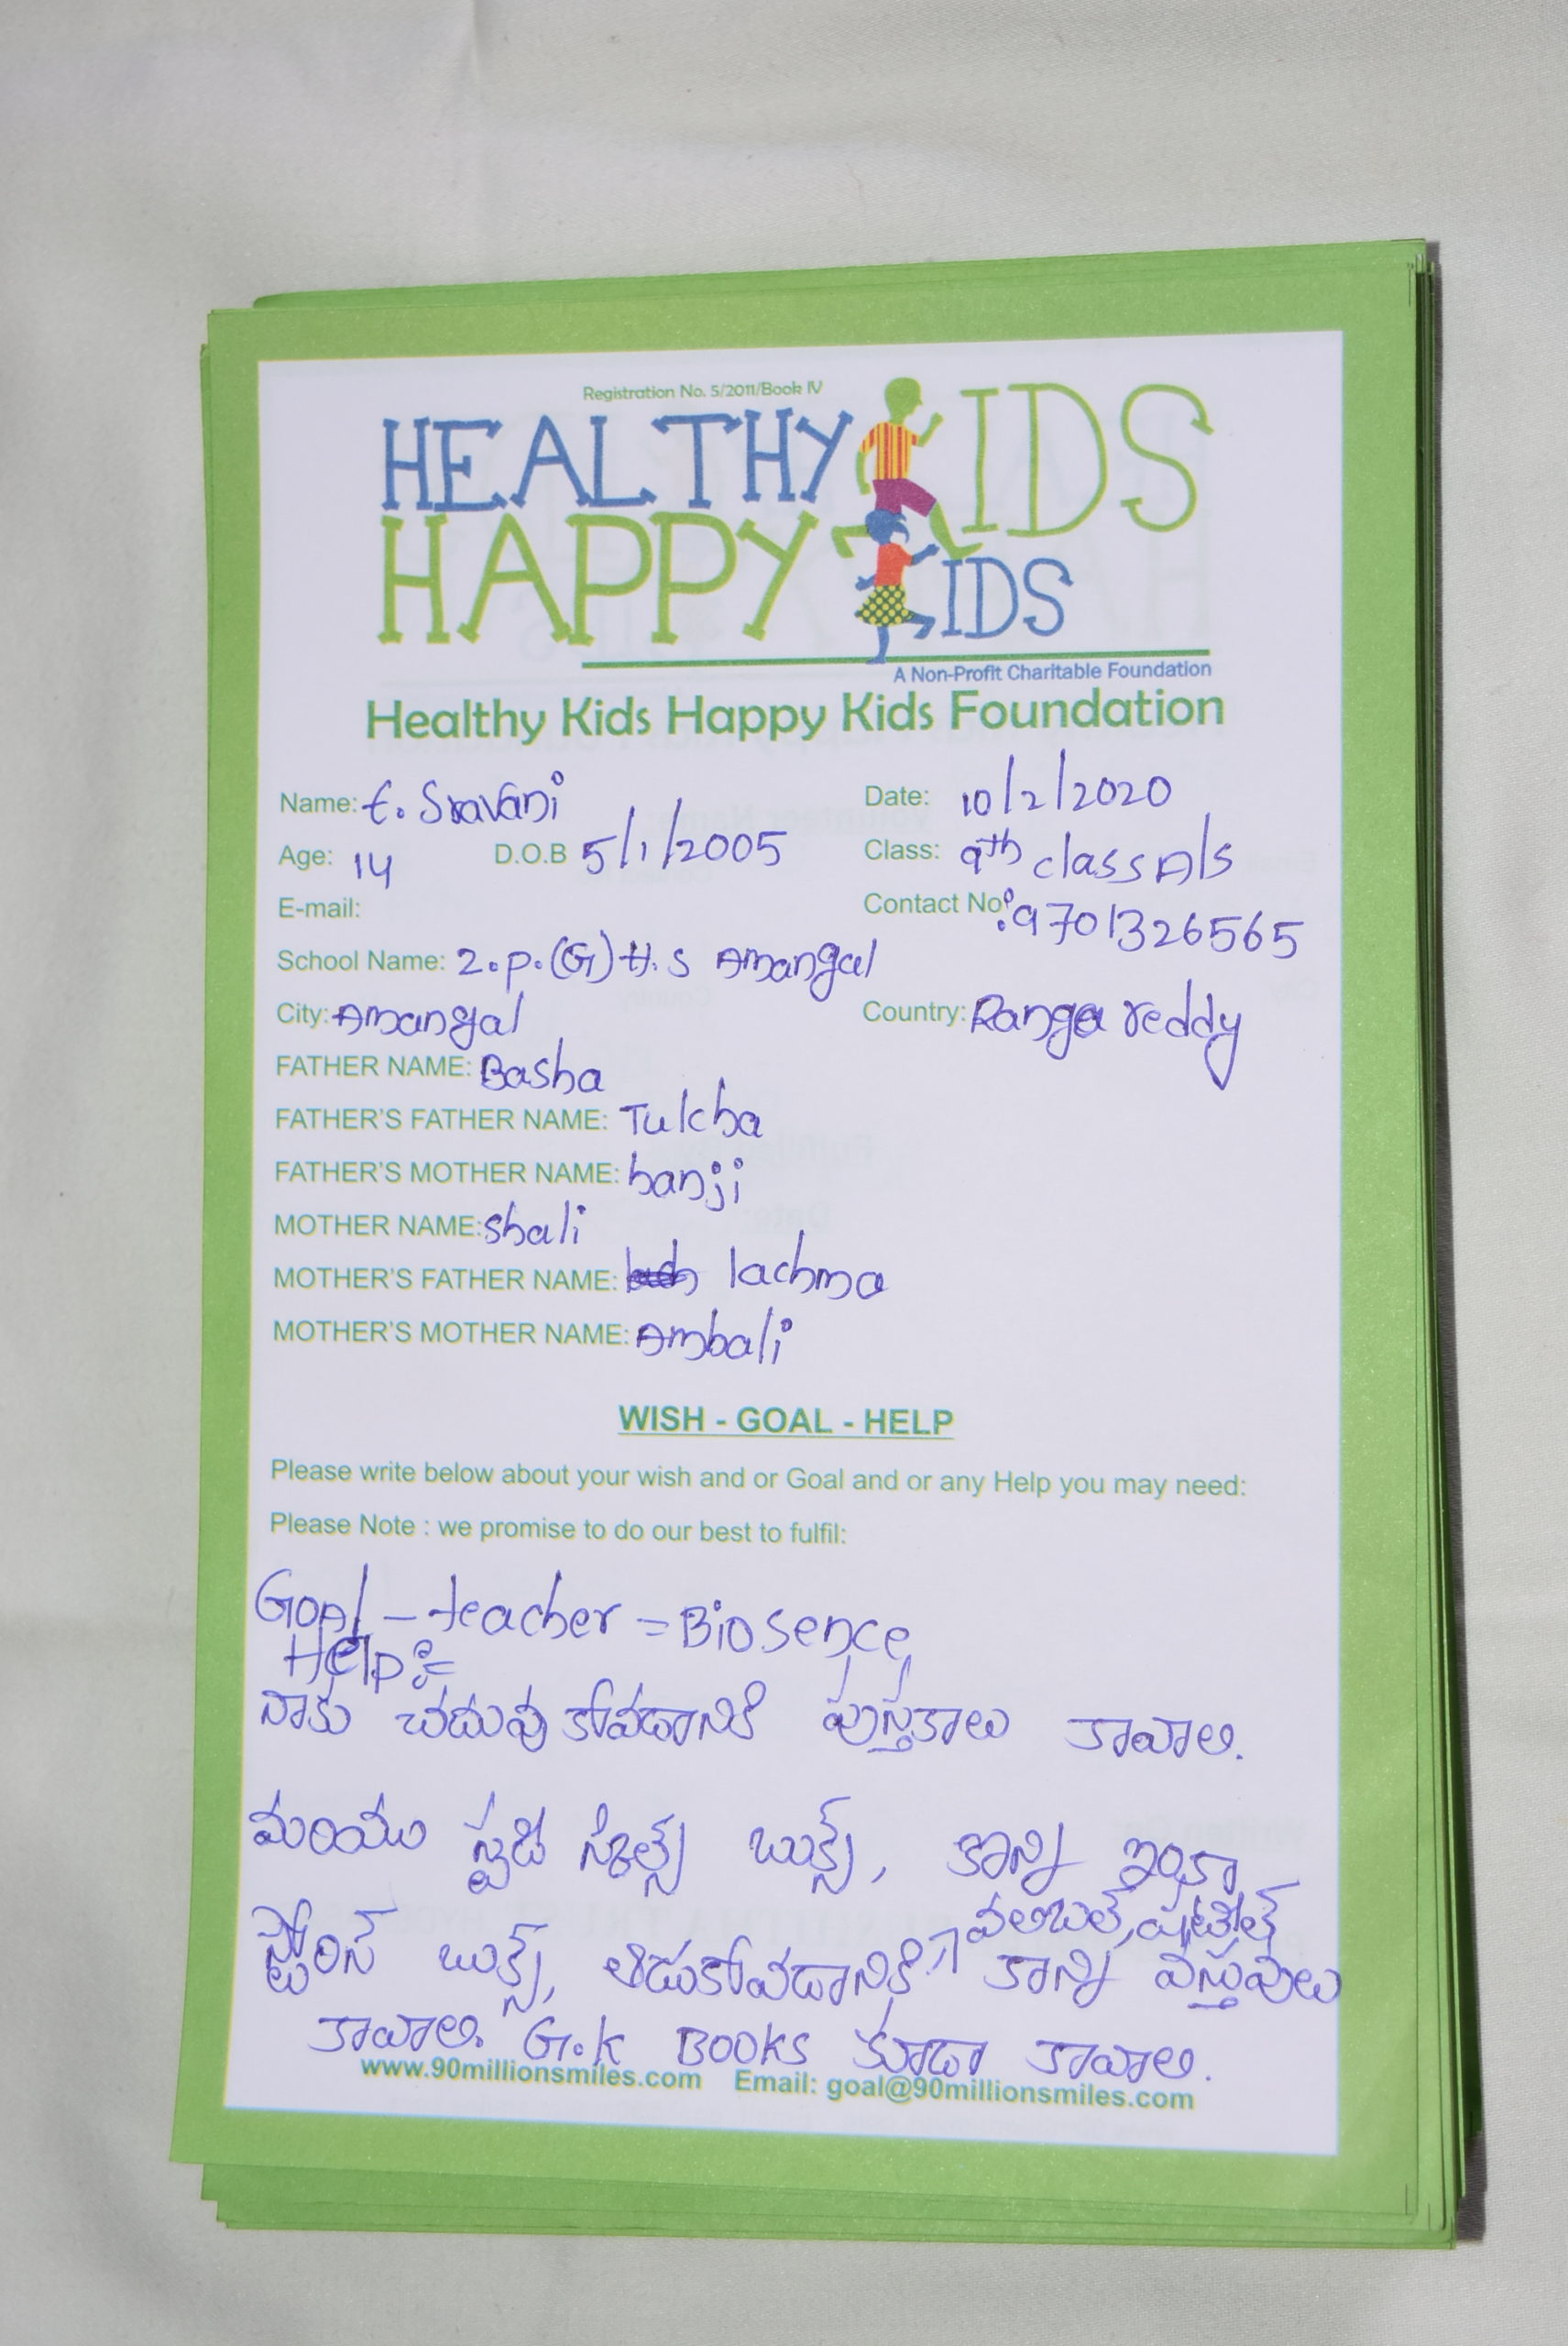 Registration No. 5/2011/Book IV
HEALTHY KIDS
HAPPY KIDS
A Non-Profit Charitable Foundation
Healthy Kids Happy Kids Foundation
Name: E. Sravani Date: 10/2/2020
Age: 14 D.O.B 5/1/2005 Class: 9th class A/s
E-mail: Contact No: 9701326565
School Name: 2.p.(G) H.S Amangal
City: Amangal Country: Ranga reddy
FATHER NAME: Basha
FATHER'S FATHER NAME: Tulcha
FATHER'S MOTHER NAME: hanji
MOTHER NAME: shali
MOTHER'S FATHER NAME: lachma
MOTHER'S MOTHER NAME: Ambali
WISH - GOAL - HELP
Please write below about your wish and or Goal and or any Help you may need:
Please Note : we promise to do our best to fulfil:
Goal - teacher = Bio sence
Help :=
నాకు చదువు కోవడానికి పుస్తకాలు కావాలి.
మరియు స్టడి స్కిల్స్ బుక్స్, కొన్ని ఇంకా
స్టోరీస్ బుక్స్, ఆడుకోవడానికి కొన్ని వస్తువులు
కావాలి. G.k BOOKS కూడా కావాలి.
www.90millionsmiles.com Email: goal@90millionsmiles.com